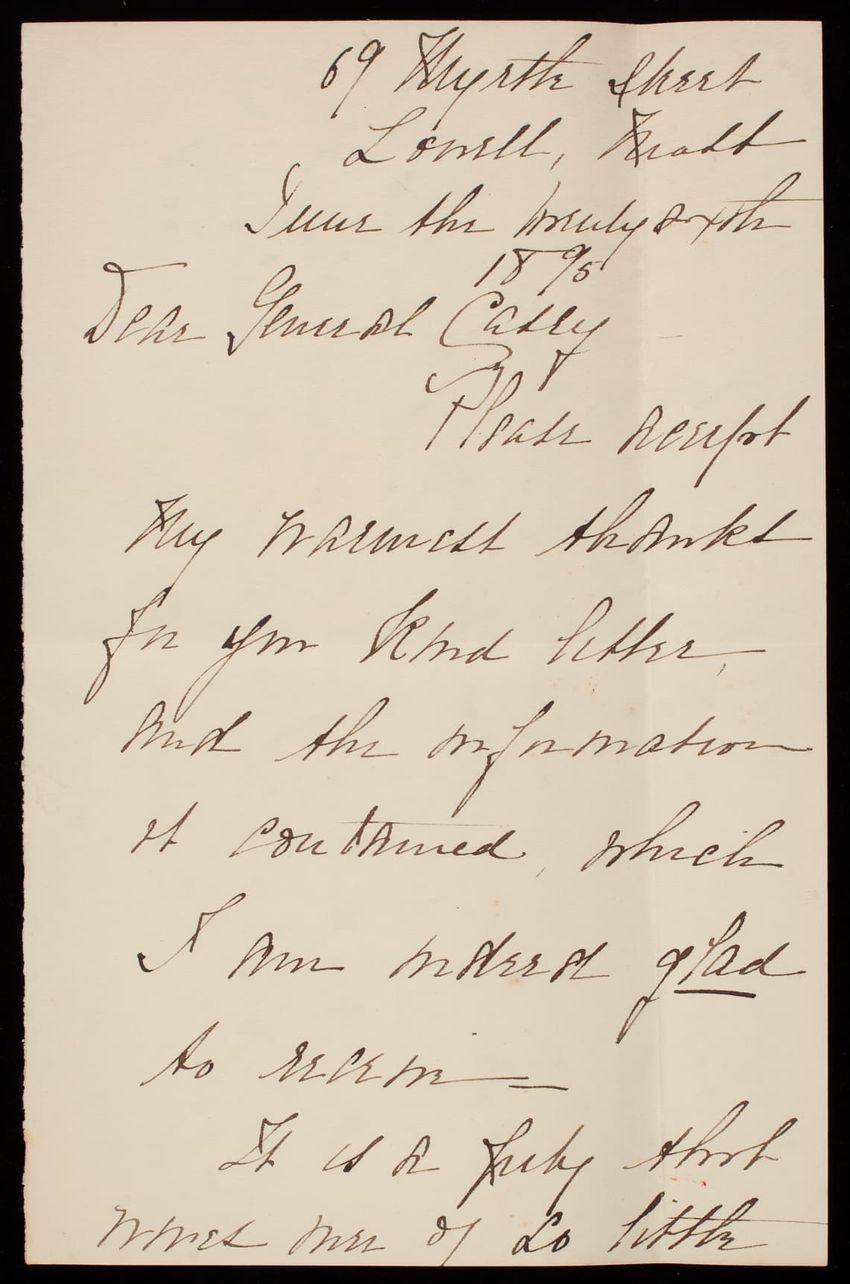 69 Myrtle Street
Lowell, Mass
June the twenty sixth
1895
Dear General Casey
Please accept
my warmest thanks
for your kind letter,
and the information
it contained, which
I am indeed glad
to receive
It is a pity that
of so little